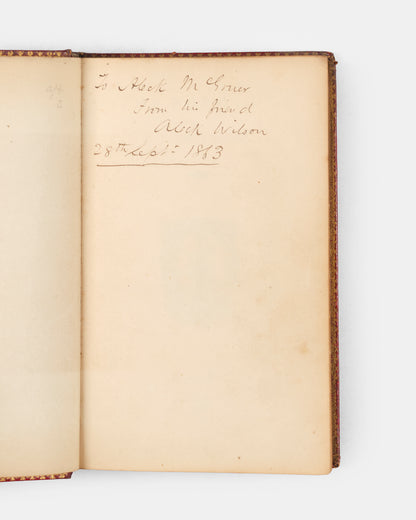 To Aleck M
from his friend
Aleck Wilson
28th Septr 1863